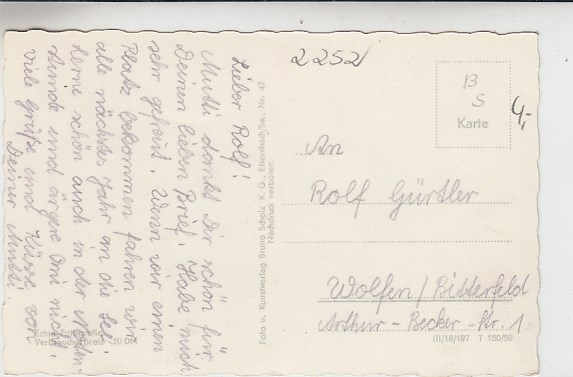 Lieber Rolf!
Mutti dankt Dir schön für
Deinen lieben Brief. Habe mich
sehr gefreut. Wenn wir einen
Platz bekommen fahren wir
alle nächstes Jahr an die See.
Lerne schön auch in der
Stunde und ärgere Omi nicht.
viele Grüße und Küsse von
Deiner Mutti.
Echte Fotografie
Verbraucherpreis -,50 DM
Foto u. Kunstverlag Bruno Scholz K. G., Ebersbach/Sa., Nr. 47
Nachdruck verboten
2252
B
S
Karte
4,-
An
Rolf Gürtler
Wolfen/Bitterfeld
Arthur-Becker-Str. 1
III/18/197 T 150/59